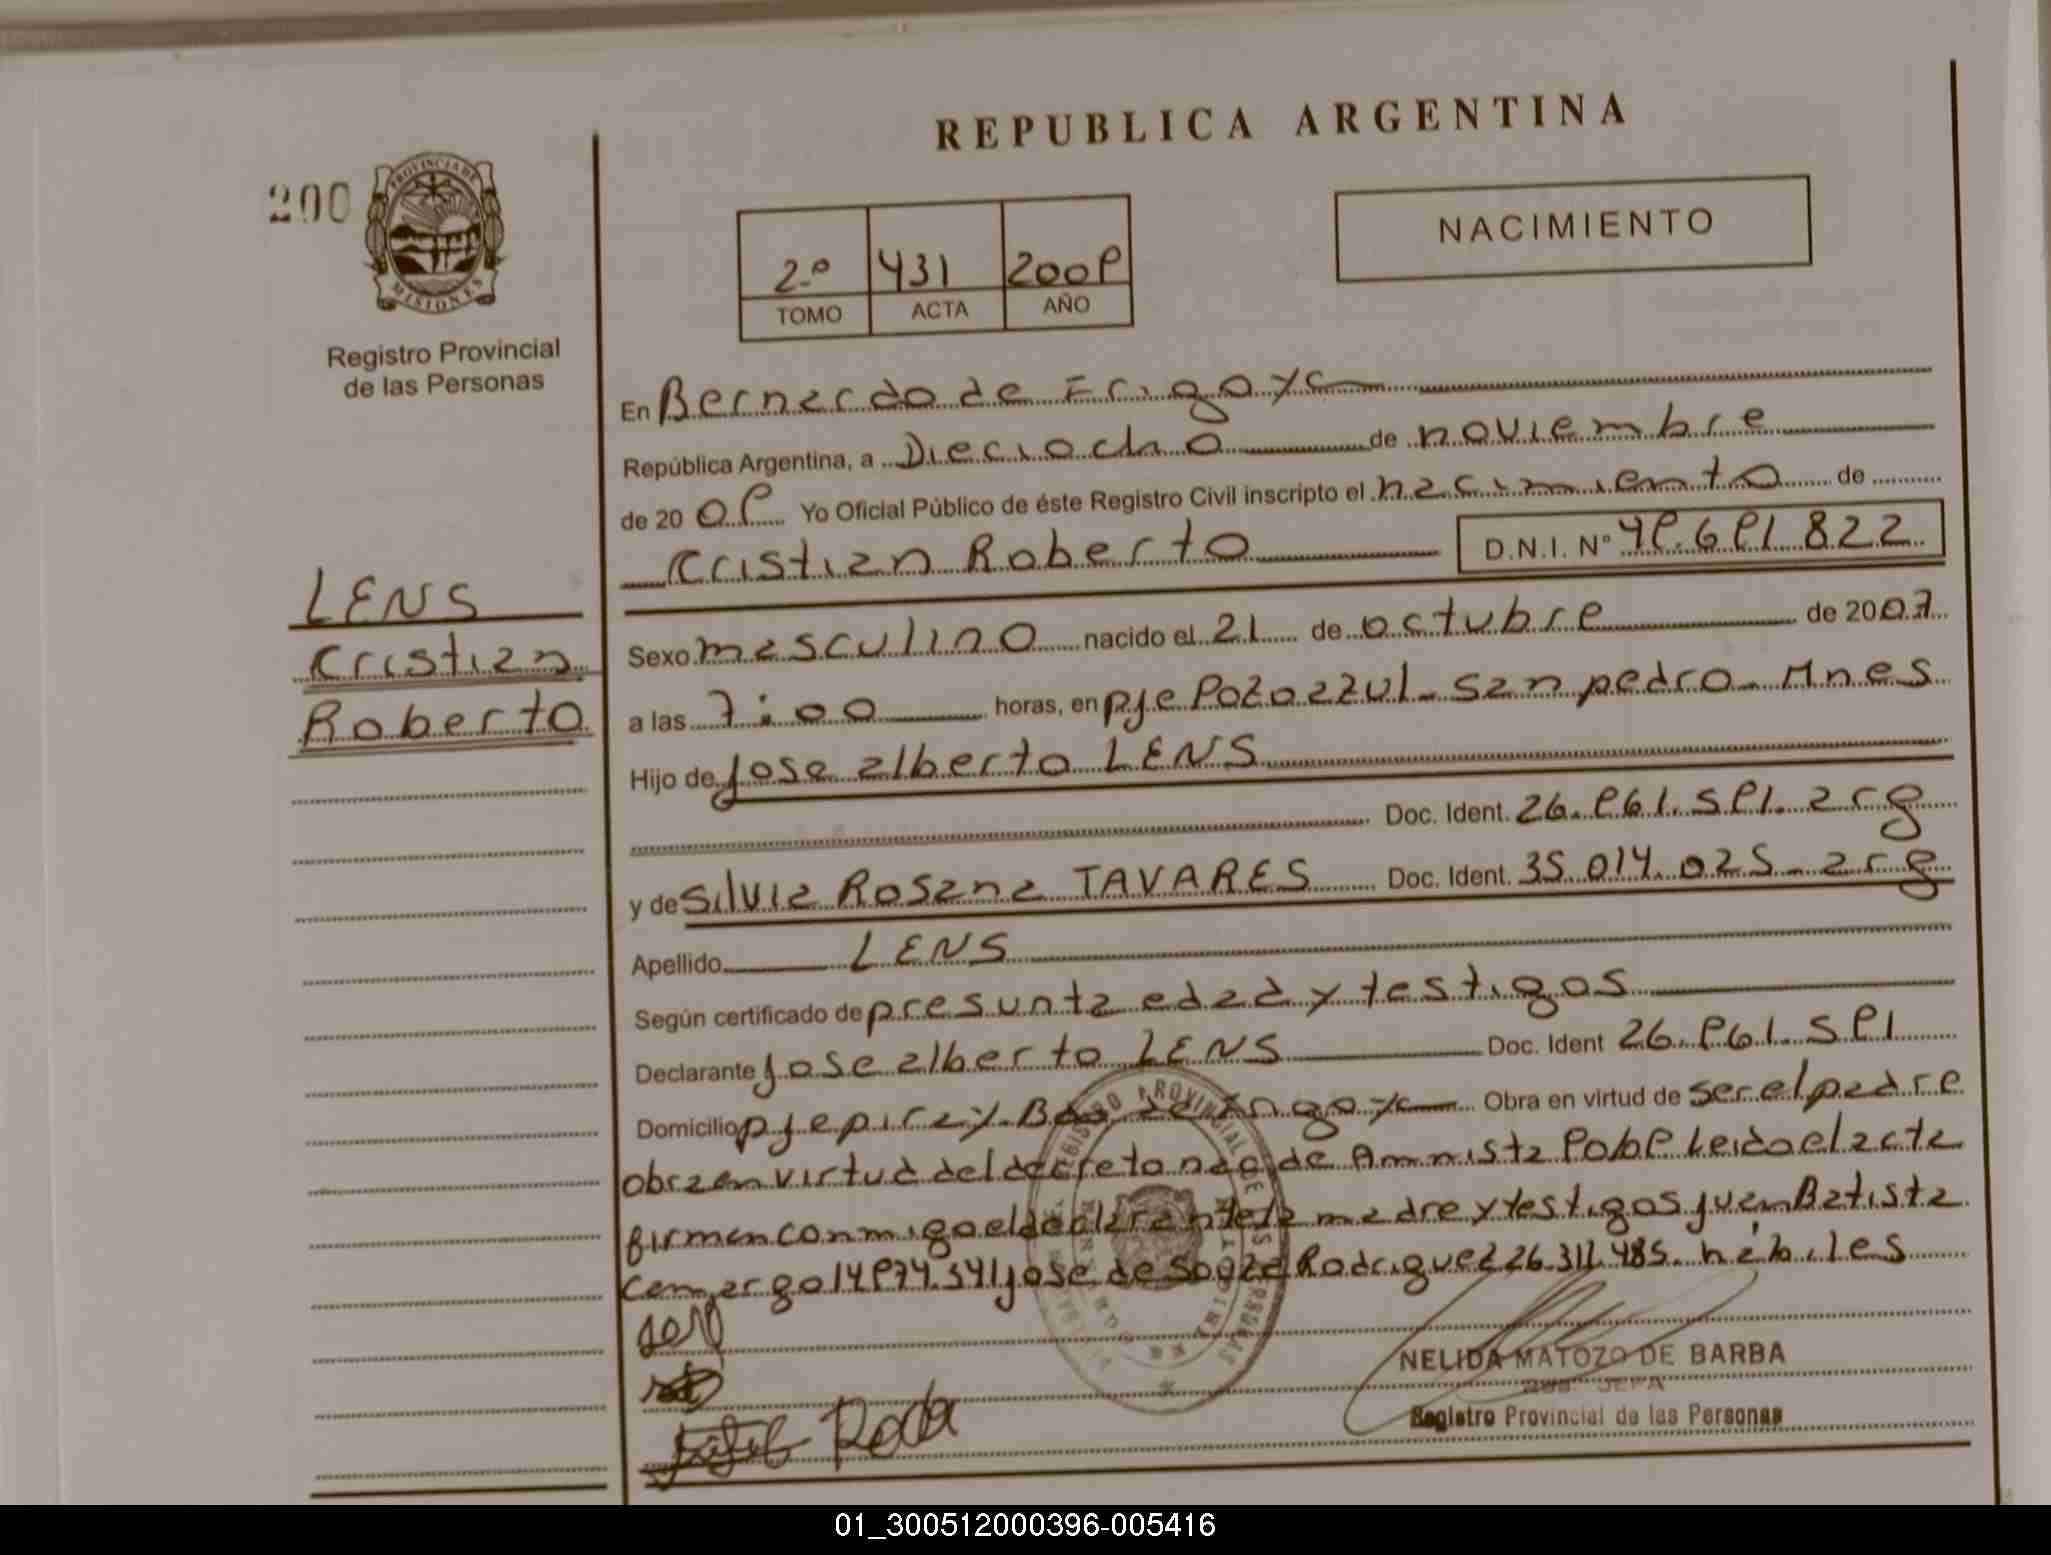 REPUBLICA ARGENTINA
200
PROVINCIA DE MISIONES
Registro Provincial
de las Personas
2º 431 2009
TOMO ACTA AÑO
NACIMIENTO
LENS
Cristian
Roberto
En Bernardo de Irigoyen
República Argentina, a Dieciocho de noviembre
de 20 09 Yo Oficial Público de éste Registro Civil inscripto el nacimiento de
Cristian Roberto D.N.I. Nº 49.691.822
Sexo masculino nacido el 21 de octubre de 2007
a las 7:00 horas, en pje Pozo azul - san pedro - Mnes
Hijo de jose alberto LENS
Doc. Ident. 26.961.591. arg
y de silvia Rosana TAVARES Doc. Ident. 35.014.025 - arg
Apellido LENS
Según certificado de presunta edad y testigos
Declarante jose alberto LENS Doc. Ident 26.961.591
Domicilio pje piray. Bdo. de Irigoyen Obra en virtud de ser el padre
obra en virtud del decreto nac de Amnista 90/09 Leido el acta
firman conmigo el declarante la madre y testigos juan Batista
Camargo 14.974.541 jose de Souza Rodriguez 26.311.485. hábiles
NELIDA MATOZO DE BARBA
SUB JEFA
Registro Provincial de las Personas
01_300512000396-005416